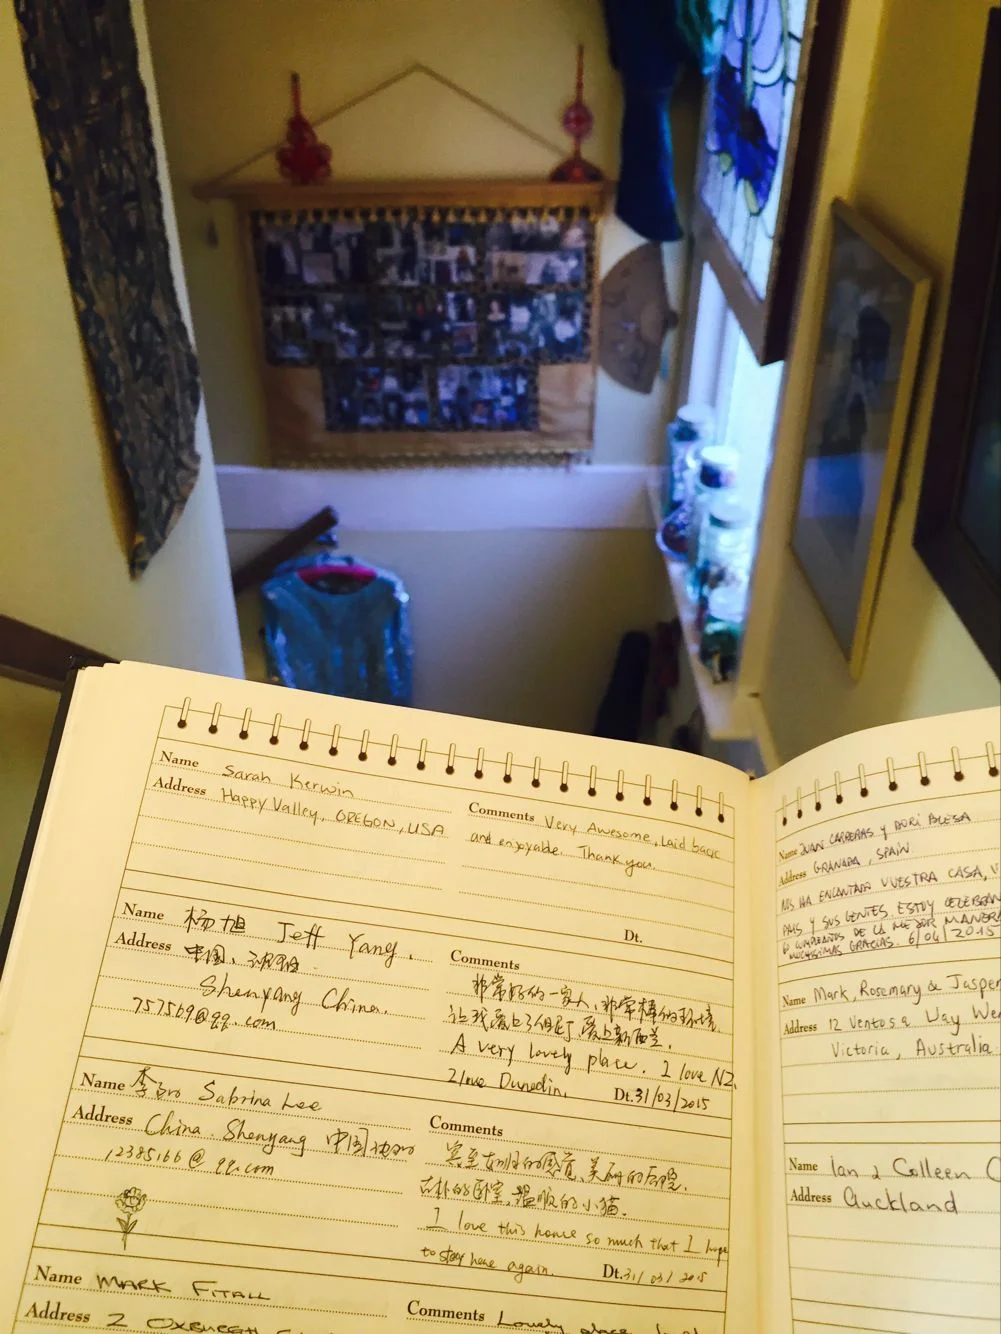 Name Sarah Kerwin
Address Happy Valley, OREGON, USA
Comments Very Awesome, Laid back
and enjoyable. Thank you.
Dt.
Name 杨旭 Jeff Yang.
Address 中国、沈阳
Shenyang China.
757569@qq.com
Comments
非常好的一家人、非常棒的环境.
让我爱上了但尼丁 爱上新西兰.
A very lovely place. I love NZ.
I love Dunedin. Dt. 31/03/2015
Name 李 Sabrina Lee
Address China. Shenyang 中国沈阳
12385166@qq.com
Comments
宾至如归的感觉、美丽的后院.
古朴的卧室,温顺的小猫.
I love this house so much that I hope
to stay here again. Dt. 31/03/2015
Name MARK FITALL
Address 2
Comments Lovely place
Name JUAN CARRERAS Y DORI BLESA
Address GRANADA, SPAIN
NOS HA ENCANTADO VUESTRA CASA, V
PAIS Y SUS GENTES. ESTOY CELEBRAN
CUMPLEAÑOS DE LA MEJOR MANERA
MUCHISIMAS GRACIAS. 6/04/2015
Name Mark, Rosemary & Jasper
Address 12 Ventosa Way We
Victoria, Australia
Name Ian & Colleen
Address Auckland